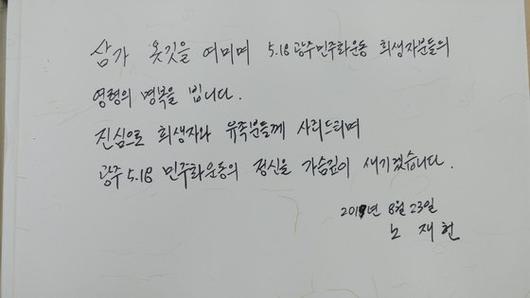 삼가 옷깃을 여미며 5.18 광주민주화운동 희생자분들의
영령의 명복을 빕니다.
진심으로 희생자와 유족분들께 사죄드리며
광주 5.18 민주화운동의 정신을 가슴깊이 새기겠습니다.
2019년 8월 23일
노 재 헌